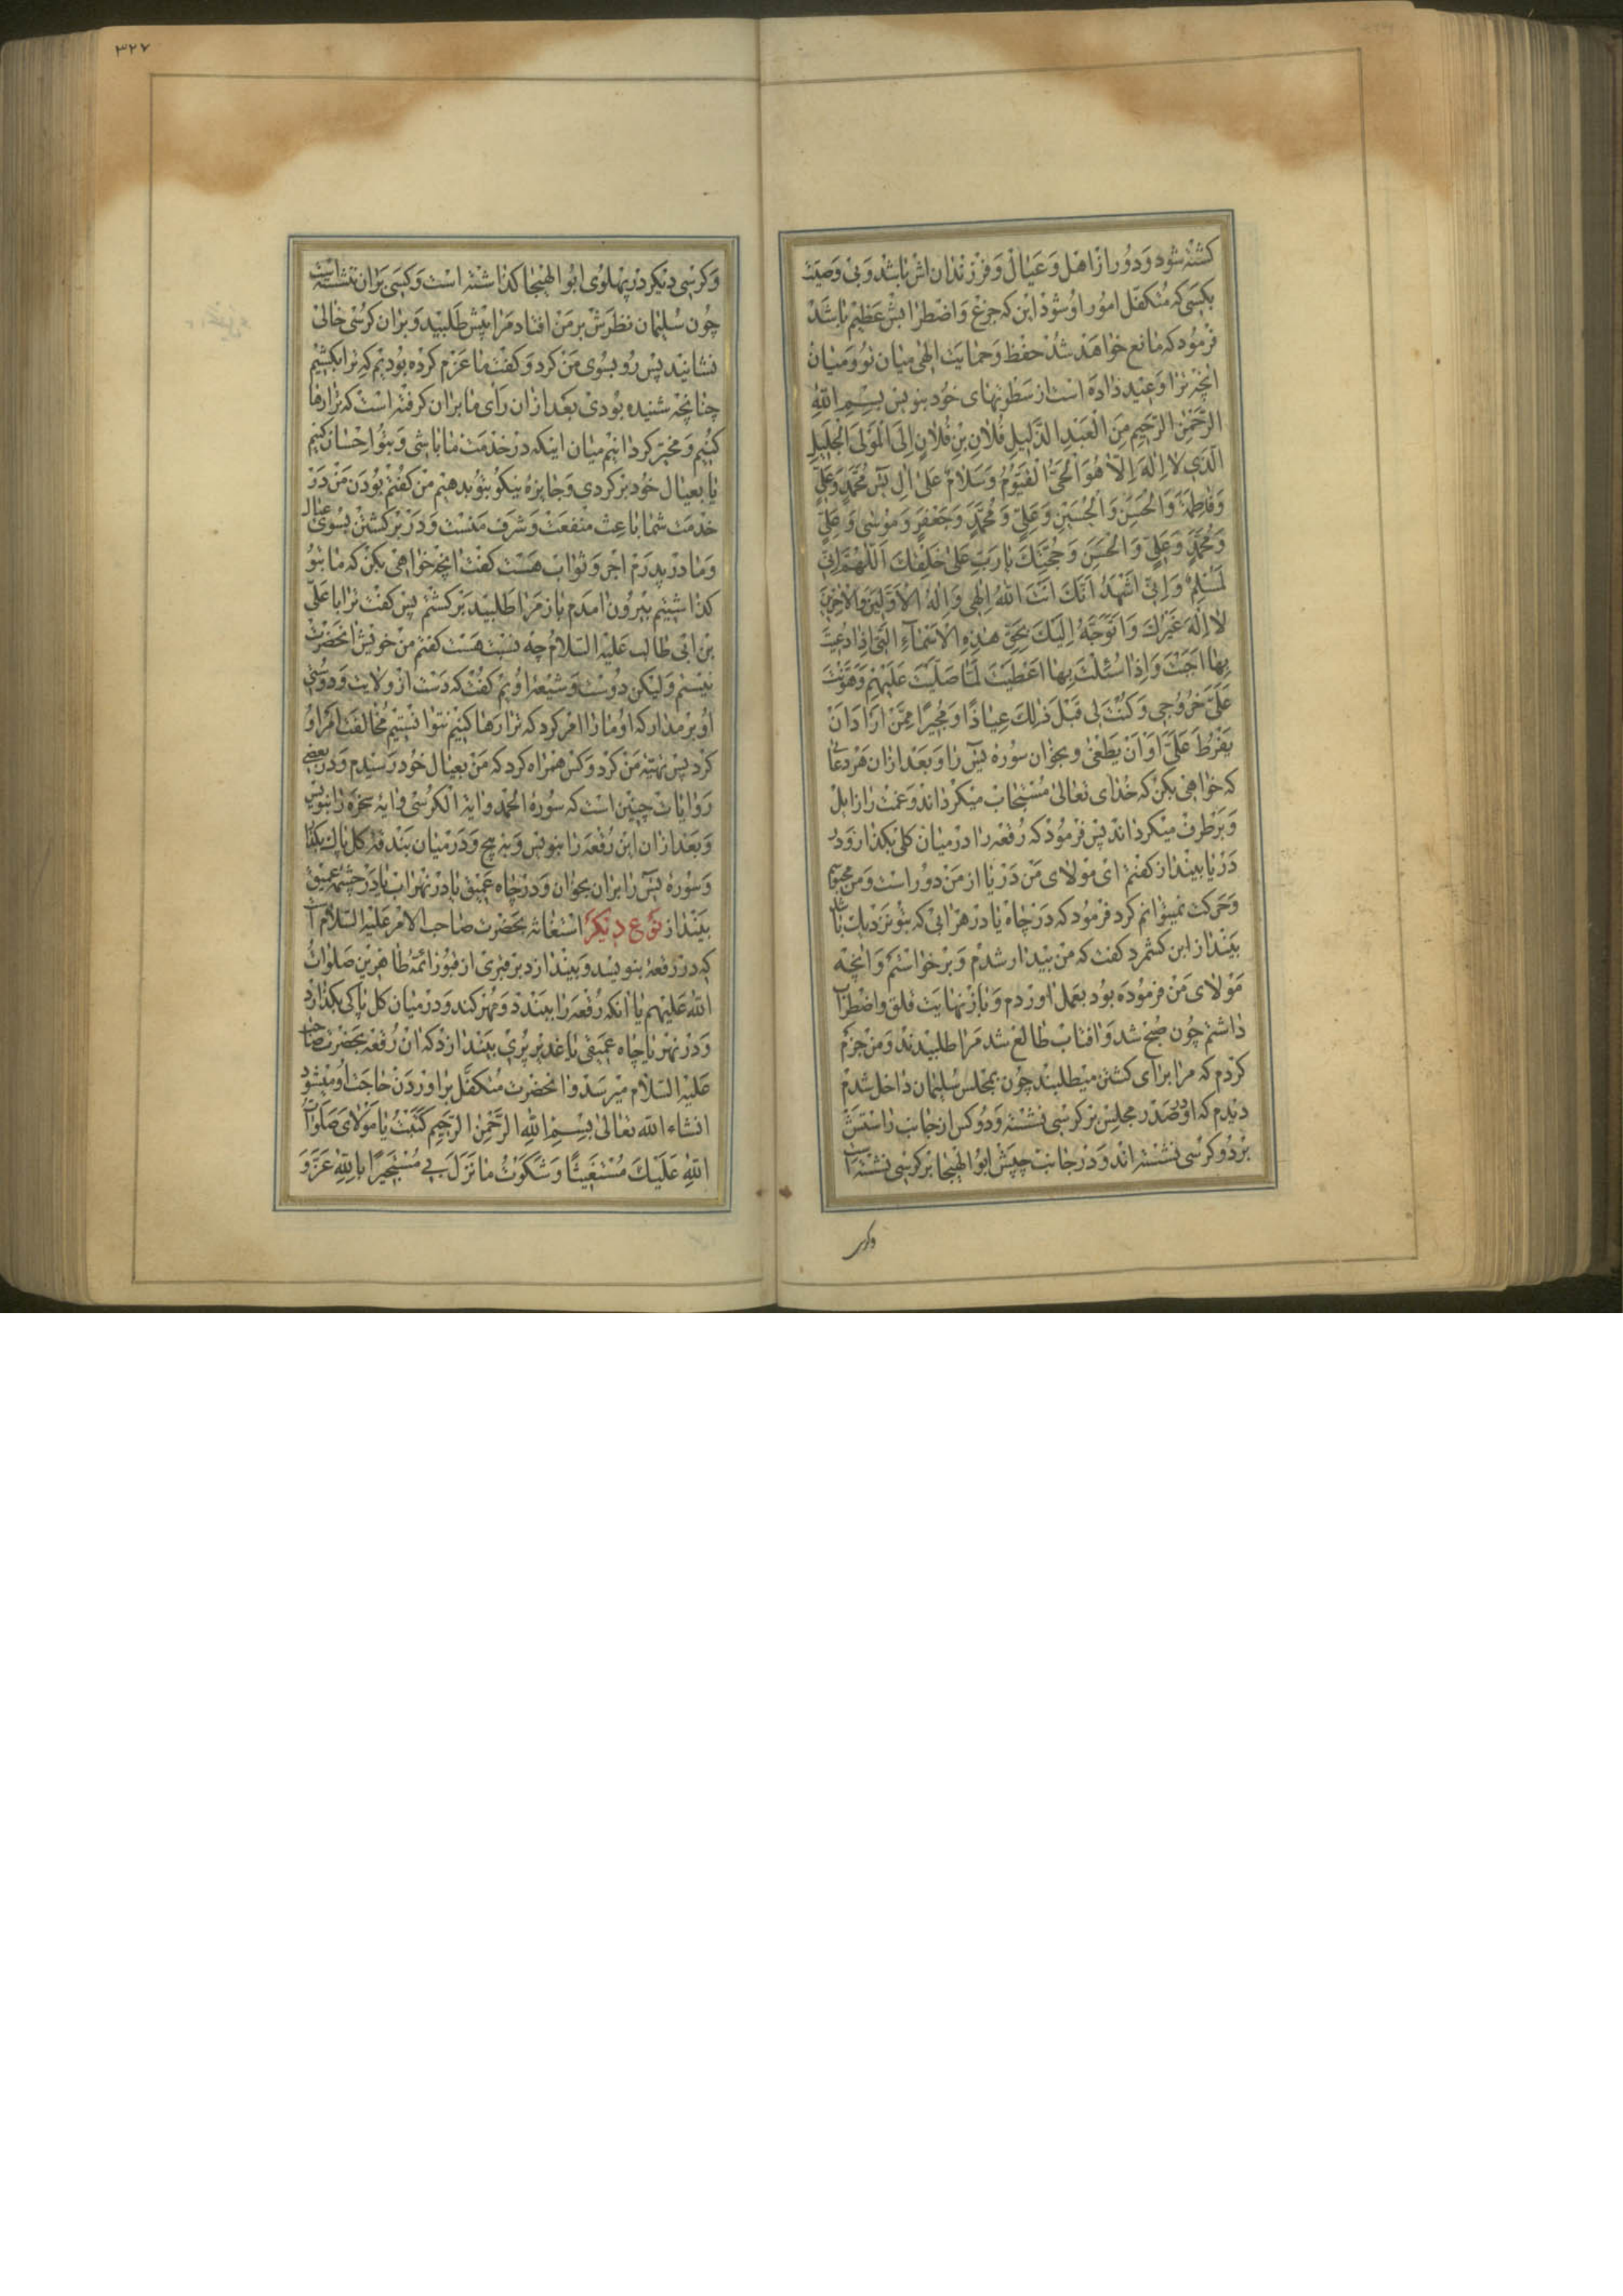 کشته شود و دور از اهل و عیال و فرزندان اش باشد و بی وصیت
بکسی که متکفل امور او شود این که جزع و اضطرابش عظیم باشد
فرمود که مانع خواهد شد حفظ و حمایت الهی میان تو و میان
انچه ترا وعید داده است از سطوتهای خود بنویس بِسمِ اللهِ
الرَّحمنِ الرَّحیمِ مِنَ العَبدِ الذَّلیلِ فُلانِ بنِ فُلانٍ اِلَی المَولَی الجَلیلِ
الَّذی لا اِلهَ اِلّا هُوَ الحَیُّ القَیّومُ وَسَلامٌ عَلی الِ یس مُحَمَّدٍ وَعَلیٍّ
وَفاطِمَةَ وَالحَسَنِ وَالحُسَینِ وَعَلیٍّ وَمُحَمَّدٍ وَجَعفَرٍ وَموسی وَعَلیٍّ
وَمُحَمَّدٍ وَعَلیٍّ وَالحَسَنِ وَحُجَّتِکَ یا رَبِّ عَلی خَلقِکَ اَللّهُمَّ اِنّی
لَمُسلِمٌ وَاِنّی اَشهَدُ اَنَّکَ اَنتَ اللهُ اِلهی وَاِلهُ الاَوَّلینَ وَالاخِرینَ
لا اِلهَ غَیرُکَ وَاَتَوَجَّهُ اِلَیکَ بِحَقِّ هذِهِ الاَسمآءِ الَّتی اِذا دُعیتَ
بِها اَجَبتَ وَاِذا سُئِلتَ بِها اَعطَیتَ لَمّا صَلَّیتَ عَلَیهِم وَهَوَّنتَ
عَلَیَّ خُروجی وَکُنتَ لی قَبلَ ذلِکَ عِیاذًا وَمُجیرًا مِمَّن اَرادَ اَن
یَفرُطَ عَلَیَّ اَو اَن یَطغی و بخوان سوره یس را و بعد از ان هر دعائی
که خواهی بکن که خدای تعالی مستجاب میکرداند و غمت را زایل
و برطرف میکرداند پس فرمود که رقعه را در میان کلی بکذار و در
دریا بینداز کفتم ای مولای من دریا از من دور است و من محبوسم
و حرکت نمیتوانم کرد فرمود که در چاه یا در هر ابی که بتو نزدیک باشد
بینداز ابن کشمرد کفت که من بیدار شدم و برخواستم و انچه
مولای من فرموده بود بعمل اوردم و باز نهایت قلق و اضطراب
داشتم چون صبح شد و افتاب طالع شد مرا طلبیدند و من جزم
کردم که مرا برای کشتن میطلبند چون بمجلس سلیمان داخل شدم
دیدم که او در صدر مجلس بر کرسی نشسته و دو کس از جانب راستش
بر دو کرسی نشسته اند و در جانب چپش ابو الهیجا بر کرسی نشسته است
وکرسی
۳۲۷
و کرسی دیکر در پهلوی ابو الهیجا کذاشته است و کسی بران ننشسته است
چون سلیمان نظرش بر من افتاد مرا پیش طلبید و بران کرسی خالی
نشانید پس رو بسوی من کرد و کفت ما عزم کرده بودیم که ترا بکشیم
چنانچه شنیده بودی بعد از ان رای ما بران کرفته است که ترا رها
کنیم و مخیر کردانیم میان اینکه در خدمت ما باشی و بتو احسان کنیم
یا بعیال خود برکردی و جایزه نیکو بتو بدهیم من کفتم بودن من در
خدمت شما باعث منفعت و شرف منست و در برکشتن بسوی عیال
و مادر پیرم اجر و ثواب هست کفت انچه خواهی بکن که ما بتو
کذاشتیم بیرون امدم باز مرا طلبید برکشتم پس کفت ترا با علی
بن ابی طالب علیه السلام چه نسبت هست کفتم من خویش انحضرت
نیستم و لیکن دوست و شیعه اویم کفت که دست از ولایت و دوستی
او بر مدار که او ما را امر کرد که ترا رها کنیم نتوانستیم مخالفت امر او
کرد پس تهیه من کرد و کس همراه کرد که من بعیال خود رسیدم و در بعضی
روایات چنین است که سوره الحمد و ایه الکرسی و ایه سخره را بنویس
و بعد از ان این رقعه را بنویس و به پیچ و در میان بندقه کل پاک بکذار
و سوره یس را بران بخوان و در چاه عمیق یا در نهر اب یا در چشمه عمیق
بینداز نوع دیکر استغاثه بحضرت صاحب الامر علیه السلام است
که در رقعه بنویسد و بیندازد بر قبری از قبور ائمه طاهرین صلوات
الله علیهم یا انکه رقعه را ببندد و مهر کند و در میان کل پاکی بکذارد
و در نهر یا چاه عمیقی یا غدیر پری بیندازد که ان رقعه بحضرت صاحب
علیه السلام میرسد و انحضرت متکفل براوردن حاجت او میشود
انشاء الله تعالی بِسمِ اللهِ الرَّحمنِ الرَّحیمِ کَتَبتُ یا مَولایَ صَلَواتُ
اللهِ عَلَیکَ مُستَغیثًا وَشَکَوتُ ما نَزَلَ بی مُستَجیرًا بِاللهِ عَزَّ وَ